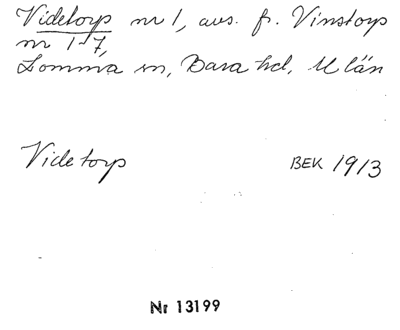 Videtorp nr 1, avs. fr. Vinstorps
nr 1-7,
Lomma sn, Bara hd, M län
Videtorp BEK 1913
Nr 13199